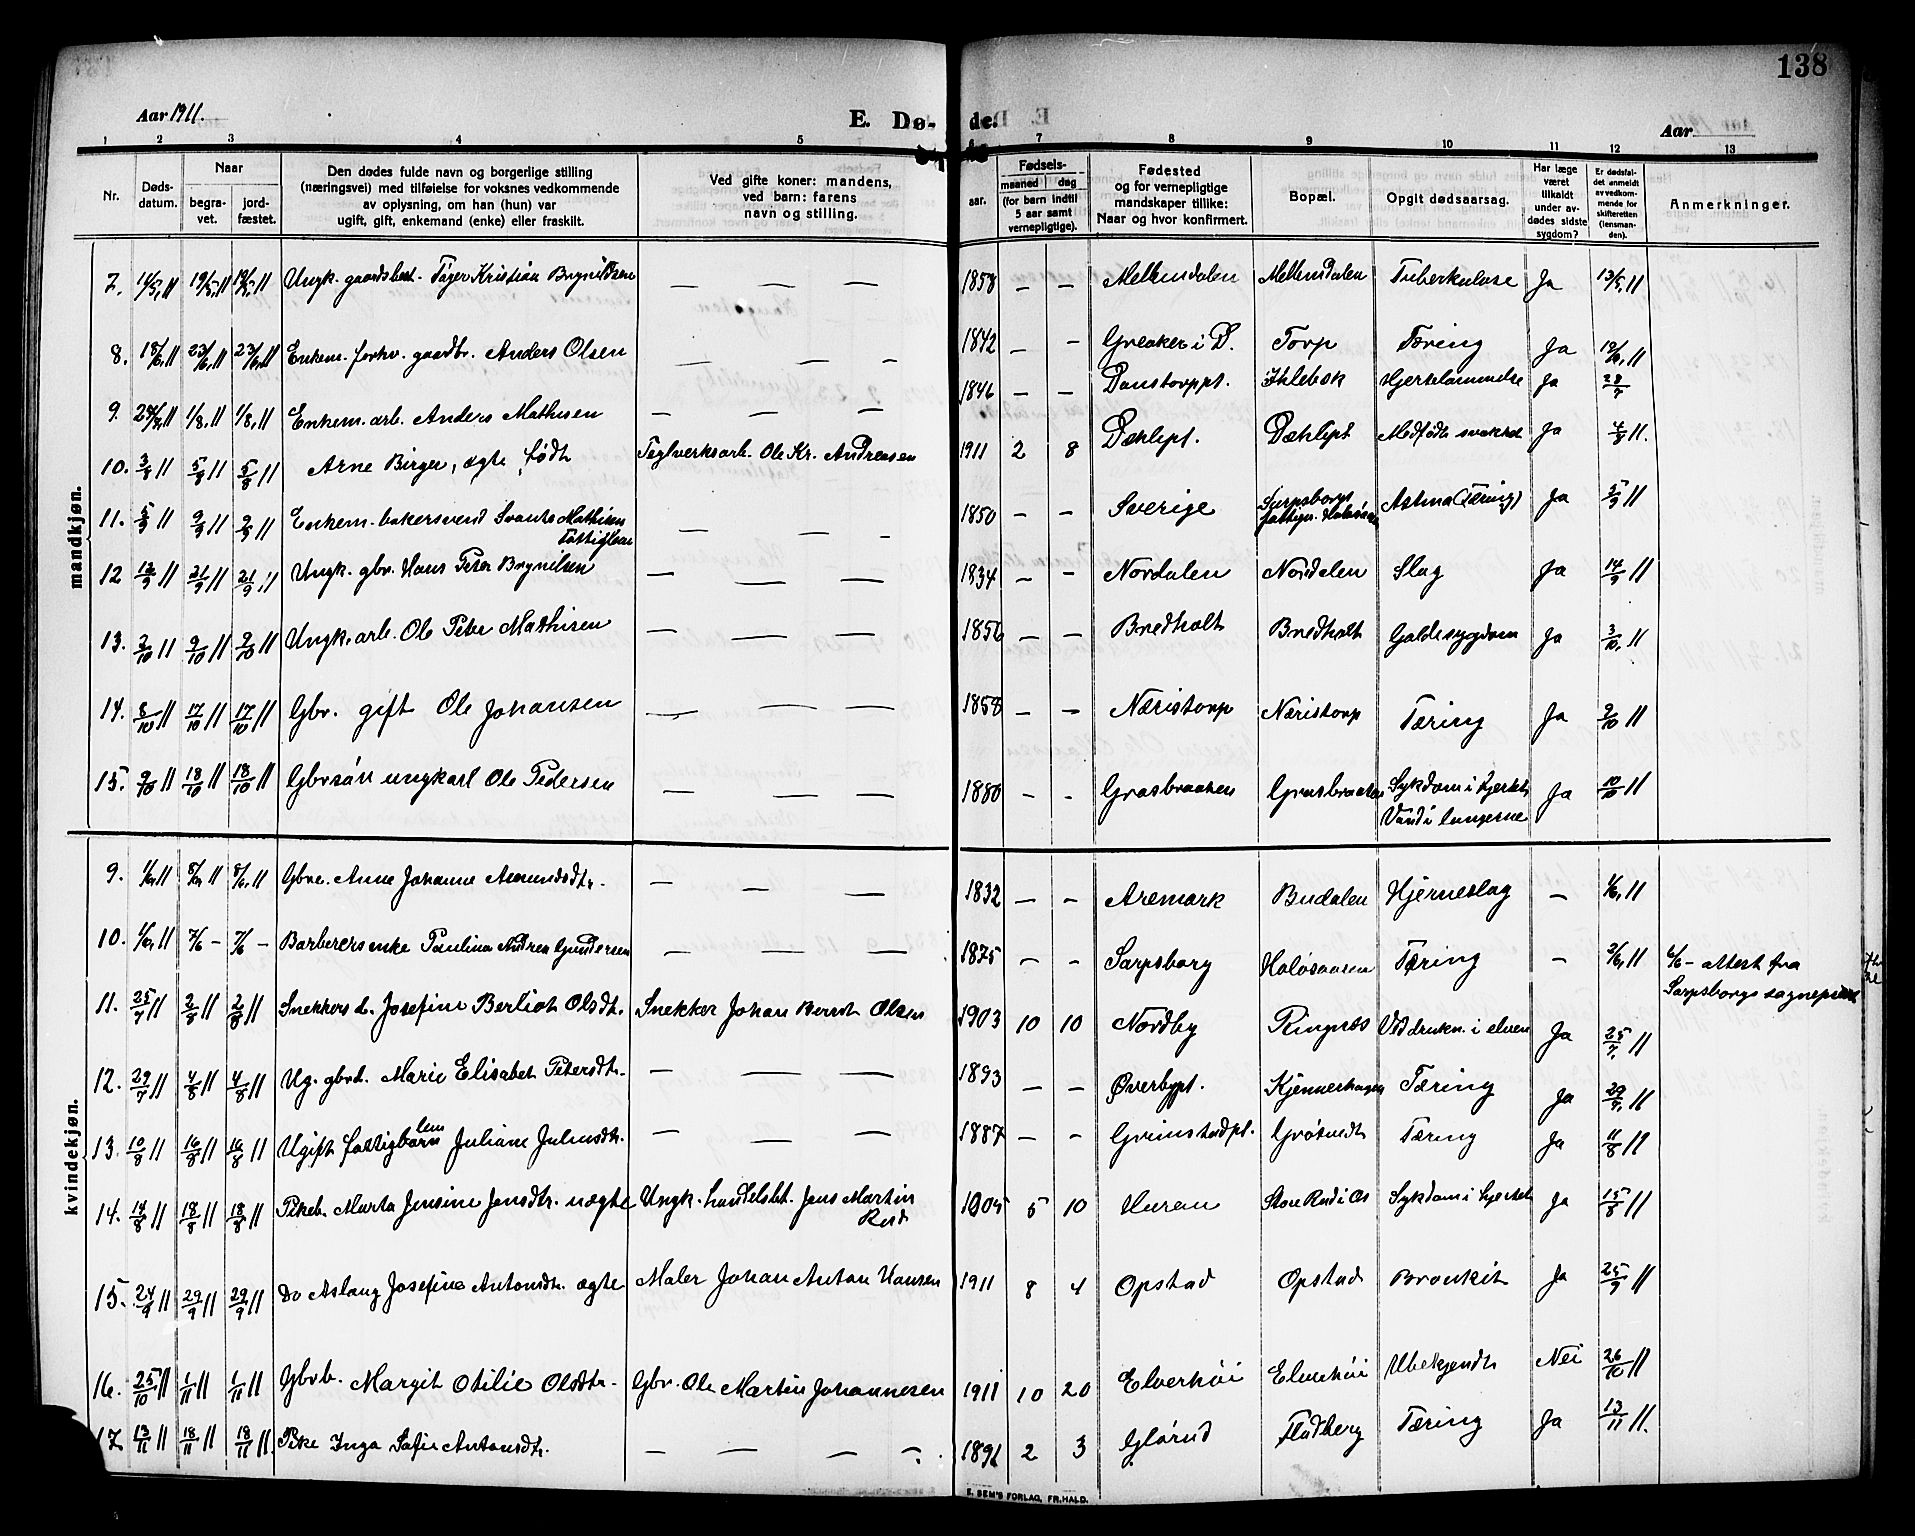 138
Aar 1911.
E. Dø- de.
Aar
1 2 3 4 5 6 7 8 9 10 11 12 13
Nr. Døds-datum. Naar begra-vet. jord-fæstet. Den dødes fulde navn og borgerlige stilling (næringsvei) med tilføielse for voksnes vedkommende av oplysning, om han (hun) var ugift, gift, enkemand (enke) eller fraskilt. Ved gifte koner: mandens, ved barn: farens navn og stilling. Fødsels- aar. maaned dag (for barn indtil 5 aar samt vernepligtige). Fødested og for vernepligtige mandskaper tillike: Naar og hvor konfirmert. Bopæl. Opgit dødsaarsag. Har læge været tilkaldt under av-dødes sidste sygdom? Er dødsfal-det anmeldt av vedkom-mende for skifteretten (lensman-den). Anmerkninger.
mandkjøn.
7. 14/5 11 19/5 11 19/5 11 Ungk. gaardsbest. Kristian Brynildsen — — — 1858 — — Mellemdalen Mellemdalen Tuberkulose Ja 13/5 11
8. 18/6 11 23/6 11 23/6 11 Enkem. forhv. gaardbr. Anders Olsen — — — 1842 — — Greaker i D. Torp Tæring Ja 19/6 11
9. 1/8 11 1/8 11 Enkem. arb. Anders Mathisen — — — 1846 — — Danstorppl. Iklebøk Hjertelammelse Ja 28/7
10. 3/8 11 5/8 11 5/8 11 Arne Birger, ægte født Teglverksarb. Ole Kr. Andreasen 1911 2 8 Dæhlipl. Dæhlipl Medfødt svakhed Ja 4/8 11.
11. 5/9 11 9/9 11 9/9 11 Enkem. bakersvend Svante Mathisen — — — 1850 — — Sverige Sarpsborgs Astma (Tæring) Ja 5/9 11
12 13/9 11 21/9 11 21/9 11 Ungk. gbr. Hans Peter Brynilsen — — — 1834 — — Nordalen Nordalen Slag Ja 14/9 11
13. 2/10 11 9/10 11 9/10 11 Ungk. arb. Ole Peter Mathisen — — — 1856 — — Bredholt Bredholt Galdesygdom Ja 3/10 11
14. 8/10 11 17/10 11 17/10 11 Gbr. gift Ole Johansen — — — 1858 — — Næristorp Næristorp Tæring Ja 9/10 11
15. 9/10 11 18/10 11 18/10 11 Gbrsøn ungkarl Ole Pedersen — — — 1880 — — Grasbraaten Grasbraaten Sykdom i hjertet
Vand i lungerne Ja 10/10 11
kvindekjøn.
9. 1/6 11 8/6 11 8/6 11 Gbre. Anne Johanne Amundsdtr. — — — 1832 — — Aremark Budalen Hjerneslag — 1/6 11
10. 1/6 11 7/6 - 7/6 - Barberers enke Paulina Andrea Gundersen — — — 1875 — — Sarpsborg Haløsaasen Tæring — 2/6 11 6/6 - attest fra
Sarpsborgs sogneprest
11. 25/7 11 2/8 11 2/8 11 Snekkers d. Josefine Berliot Olsdt. Snekker Johan Berndt Olsen 1903 10 10 Nordby Ringnes Ved drukn. i elven Ja 25/7 11
12. 29/7 11 4/8 11 4/8 11 Ug. gbrd. Marie Elisabet Petersdt. — — — 1893 — — Øverbypl. Kjennerhagen Tæring Ja 29/7 11
13. 10/8 11 16/8 11 16/8 11 Ugift fattiglem Juliane Juliusdt. — — — 1887 — — Grimstadpl. Grøtvedt Tæring Ja 11/8 11
14. 14/8 11 18/8 11 18/8 11 Pikeb. Marta Jensine Jensdtr. uægte Ungk. handelsbet. Jens Martin
Rud 1905 5 10 Huren Store Rud i Os Sykdom i hjertet Ja 15/8 11
15. 24/9 11 29/9 11 29/9 11 Do Aslaug Josefine Antonsdtr. ægte Maler Johan Anton Hansen 1911 8 4 Opstad Opstad Bronkit Ja 25/9 11
16. 25/10 11 1/11 11 1/11 11 Gbrb. Margit Otilie Olsdtr. Gbr. Ole Martin Johannesen 1911 10 20 Elverhøi Elverhøi Ubekjendt Nei 26/10 11
17 13/11 11 18/11 11 18/11 11. Pike Inga Sofie Antonsdtr. — — — 1891 2 3 Glørud Fladberg Tæring Ja 13/11 11.
E. SEM'S FORLAG, FR.HALD.